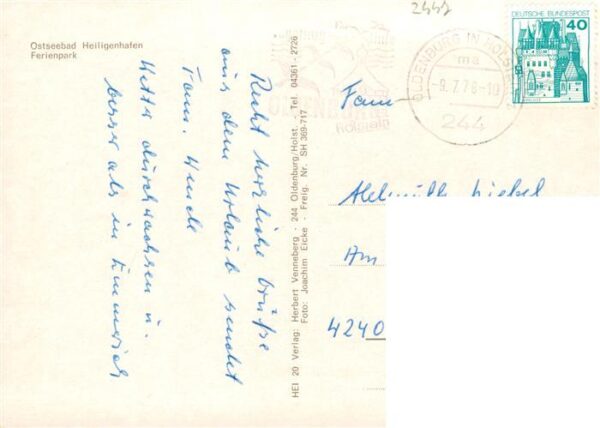 Ostseebad Heiligenhafen
Ferienpark
Recht herzliche Grüße
aus dem Urlaub sendet
Fam.
Wetter durchwachsen u.
besser als in Emmerich
HEI 20 Verlag: Herbert Venneberg - 244 Oldenburg/Holst. - Tel. 04361 - 2726
Foto: Joachim Eicke - Freig. Nr. SH 369-717
2447
OLDENBURG IN HOLST
ma
-9.7.78-10
244
Holstein
DEUTSCHE BUNDESPOST
40
Fam
Am
4240